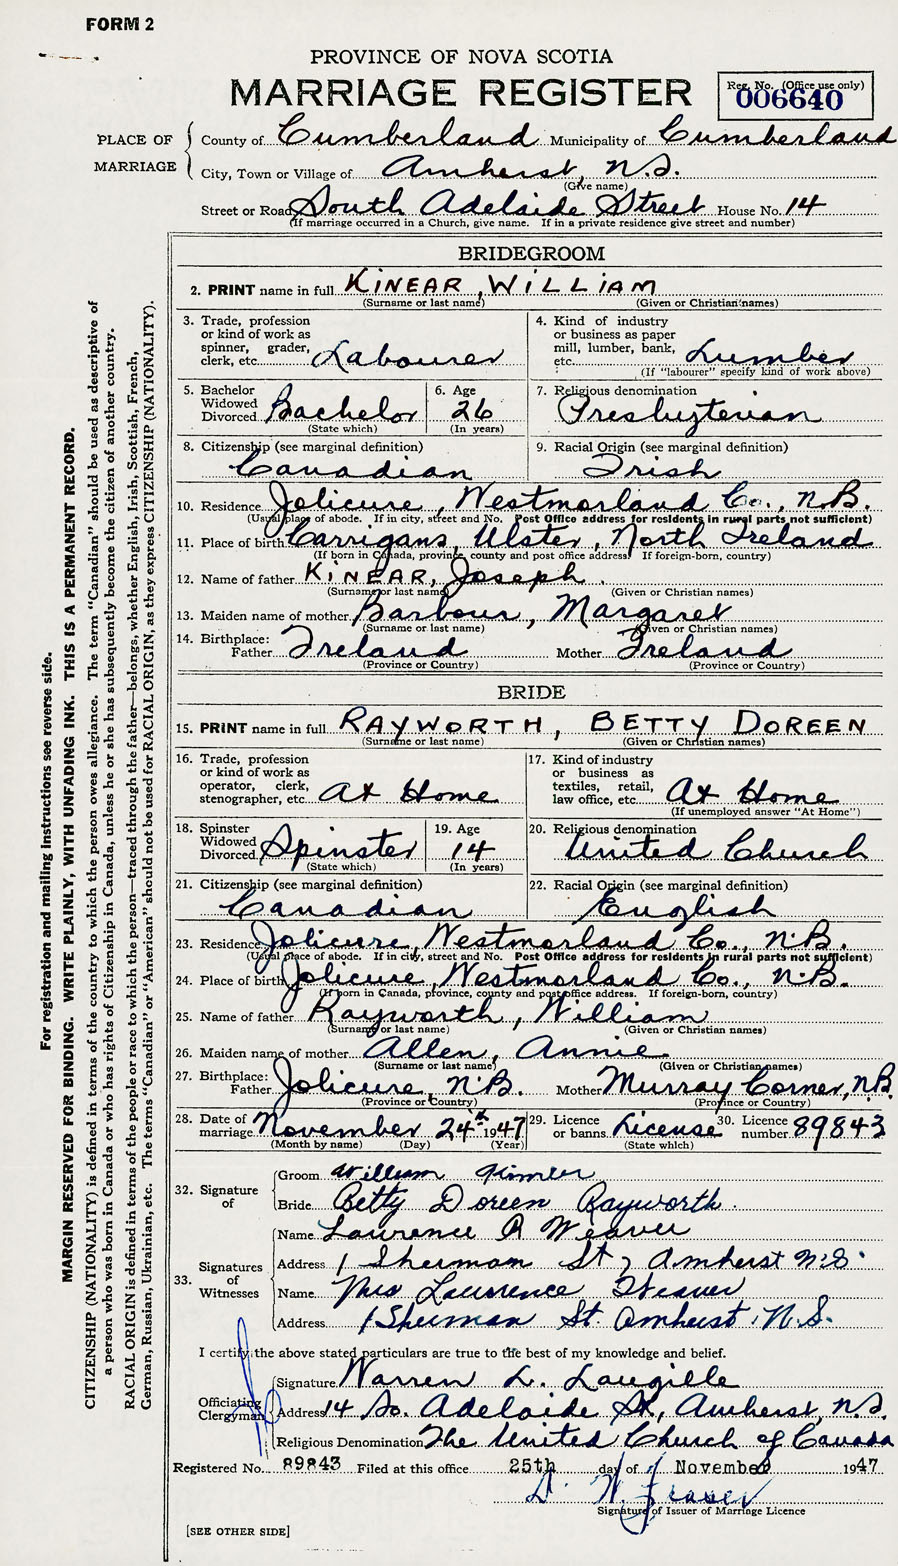 FORM 2
PROVINCE OF NOVA SCOTIA
MARRIAGE REGISTER
Reg. No. (Office use only)
006640
PLACE OF MARRIAGE
County of Cumberland Municipality of Cumberland
City, Town or Village of Amherst, N.S.
(Give name)
Street or Road South Adelaide Street House No. 14
(If marriage occurred in a Church, give name. If in a private residence give street and number)
BRIDEGROOM
2. PRINT name in full KINEAR, WILLIAM
(Surname or last name) (Given or Christian names)
3. Trade, profession
or kind of work as
spinner, grader,
clerk, etc. Labourer
4. Kind of industry
or business as paper
mill, lumber, bank,
etc. Lumber
(If "labourer" specify kind of work above)
5. Bachelor
Widowed
Divorced Bachelor
(State which)
6. Age
26
(In years)
7. Religious denomination
Presbyterian
8. Citizenship (see marginal definition)
Canadian
9. Racial Origin (see marginal definition)
Irish
10. Residence Jolicure, Westmorland Co., N.B.
(Usual place of abode. If in city, street and No. Post Office address for residents in rural parts not sufficient)
11. Place of birth Carrigans, Ulster, North Ireland
(If born in Canada, province, county and post office address. If foreign-born, country)
12. Name of father KINEAR, Joseph.
(Surname or last name) (Given or Christian names)
13. Maiden name of mother Barbour, Margaret
(Surname or last name) (Given or Christian names)
14. Birthplace:
Father Ireland Mother Ireland
(Province or Country) (Province or Country)
BRIDE
15. PRINT name in full RAYWORTH, BETTY DOREEN
(Surname or last name) (Given or Christian names)
16. Trade, profession
or kind of work as
operator, clerk,
stenographer, etc. At Home
17. Kind of industry
or business as
textiles, retail,
law office, etc. At Home
(If unemployed answer "At Home")
18. Spinster
Widowed
Divorced Spinster
(State which)
19. Age
14
(In years)
20. Religious denomination
United Church
21. Citizenship (see marginal definition)
Canadian
22. Racial Origin (see marginal definition)
English
23. Residence Jolicure, Westmorland Co., N.B.
(Usual place of abode. If in city, street and No. Post Office address for residents in rural parts not sufficient)
24. Place of birth Jolicure, Westmorland Co., N.B.
(If born in Canada, province, county and post office address. If foreign-born, country)
25. Name of father Rayworth, William
(Surname or last name) (Given or Christian names)
26. Maiden name of mother Allen, Annie
(Surname or last name) (Given or Christian names)
27. Birthplace:
Father Jolicure, N.B. Mother Murray Corner, N.B.
(Province or Country) (Province or Country)
28. Date of
marriage November 24th 1947
(Month by name) (Day) (Year)
29. Licence
or banns License
(State which)
30. Licence
number 89843
32. Signature of
Groom William Kinnear
Bride Betty Doreen Rayworth.
33. Signatures of Witnesses
Name Lawrence R Weaver
Address 1 Sherman St, Amherst N.S.
Name Mrs Lawrence Weaver
Address 1 Sherman St. Amherst, N.S.
I certify the above stated particulars are true to the best of my knowledge and belief.
Officiating Clergyman
Signature Warren L. Langille
Address 14 So. Adelaide St., Amherst, N.S.
Religious Denomination The United Church of Canada
Registered No. 89843 Filed at this office 25th day of November 1947
D. W. Fraser
Signature of Issuer of Marriage Licence
[SEE OTHER SIDE]
For registration and mailing instructions see reverse side.
MARGIN RESERVED FOR BINDING. WRITE PLAINLY, WITH UNFADING INK. THIS IS A PERMANENT RECORD.
CITIZENSHIP (NATIONALITY) is defined in terms of the country to which the person owes allegiance. The term "Canadian" should be used as descriptive of
a person who was born in Canada or who has rights of Citizenship in Canada, unless he or she has subsequently become the citizen of another country.
RACIAL ORIGIN is defined in terms of the people or race to which the person—traced through the father—belongs, whether English, Irish, Scottish, French,
German, Russian, Ukrainian, etc. The terms "Canadian" or "American" should not be used for RACIAL ORIGIN, as they express CITIZENSHIP (NATIONALITY).